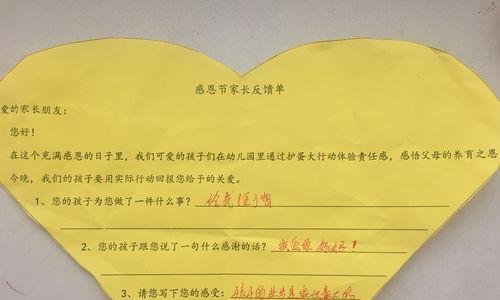 感恩节家长反馈单
爱的家长朋友:
您好!
在这个充满感恩的日子里，我们可爱的孩子们在幼儿园里通过护蛋大行动体验责任感，感悟父母的养育之恩
今晚，我们的孩子要用实际行动回报您给予的关爱。
1、您的孩子为您做了一件什么事? 给我
2、您的孩子跟您说了一句什么感谢的话? 我爱你 妈妈!
3、请您写下您的感受: 孩子的进步是